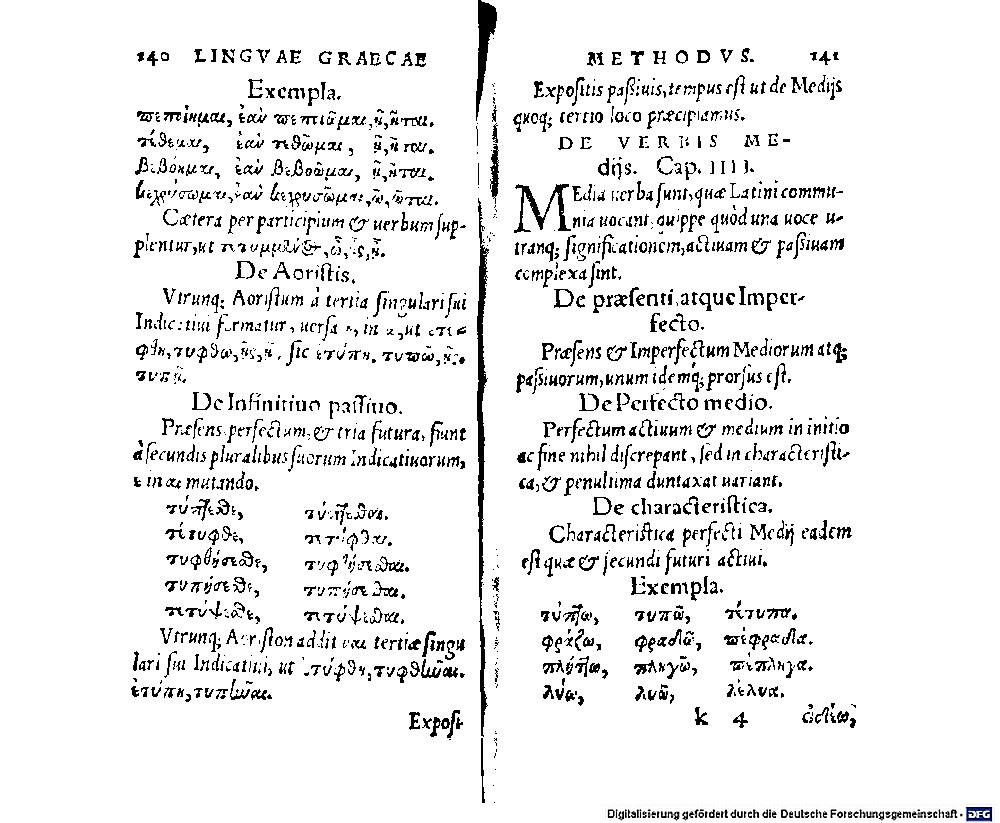 140 LINGVAE GRAECAE
Exempla.
πεποίημαι, ἐὰν πεπιῶμαι, ῇ, ῆται.
τέθειμαι, ἐὰν τεθῶμαι, ῇ, ῆται.
βεβόημαι, ἐὰν βεβοῶμαι, ῇ, ῆται.
κεχρύσωμαι, ἐὰν κεχρυσῶμαι, ῷ, ῶται.
Cætera per participium & uerbum sup-
plentur, ut τετυμμένος, ὦ, ᾖς, ᾖ.
De Aoristis.
Vtrunq; Aoristum à tertia singulari sui
Indicatiui formatur, uersa η, in ω, ut ἐτύ-
φθη, τυφθῶ, ῇς, ῇ, sic ἐτύπη, τυπῶ, ῇς.
τυπῇ.
De Infinitiuo passiuo.
Præsens, perfectum, & tria futura, fiunt
à secundis pluralibus suorum Indicatiuorum,
ε in αι mutando.
τύπτεσθε, τύπτεσθαι.
τέτυφθε, τετύφθαι.
τυφθήσεσθε, τυφθήσεσθαι.
τυπήσεσθε, τυπήσεσθαι.
τετύψεσθε, τετύψεσθαι.
Vtrunq; Aoriston addit ναι tertiæ singu
lari sui Indicatiui, ut ἐτύφθη, τυφθῆναι.
ἐτύπη, τυπῆναι.
Exposi-
METHODVS. 141
Expositis passiuis, tempus est ut de Medijs
quoq; tertio loco præcipiamus.
DE VERBIS ME-
dijs. Cap. IIII.
MEdia uerba sunt, quæ Latini commu-
nia uocant, quippe quòd una uoce u-
tranq; significationem, actiuam & passiuam
complexa sint.
De præsenti, atque Imper-
fecto.
Præsens & Imperfectum Mediorum atq;
passiuorum, unum idemq; prorsus est.
De Perfecto medio.
Perfectum actiuum & medium in initio
ac fine nihil discrepant, sed in characteristi-
ca, & penultima duntaxat uariant.
De characteristica.
Characteristica perfecti Medij eadem
est quæ & secundi futuri actiui.
Exempla.
τύπτω, τυπῶ, τέτυπα.
φράζω, φραδῶ, πέφραδα.
πλήττω, πληγῶ, πέπληγα.
λύω, λυῶ, λέλυα.
k 4
Digitalisierung gefördert durch die Deutsche Forschungsgemeinschaft - DFG